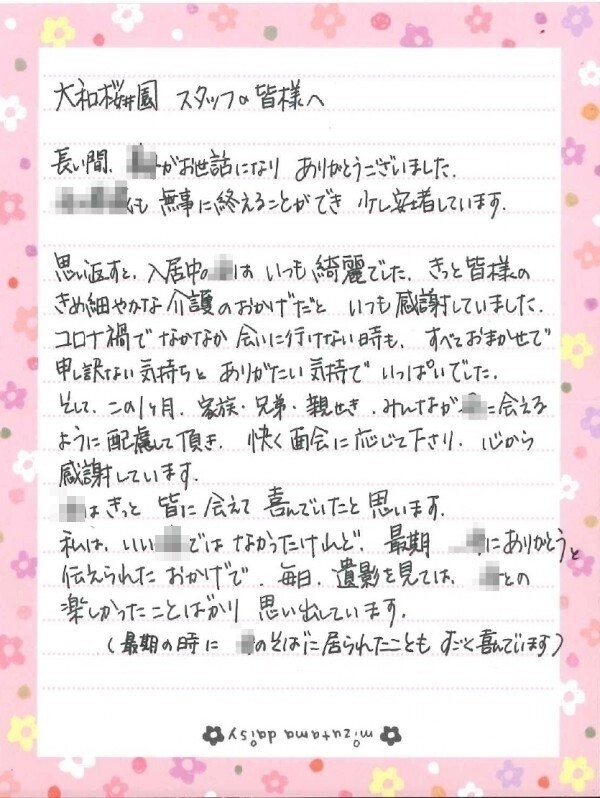 大和桜井園 スタッフの皆様へ
長い間、がお世話になり ありがとうございました.
も 無事に終えることができ 少し安堵しています.
思い返すと、入居中のは いつも 綺麗でした. きっと皆様の
きめ細やかな 介護のおかげだと いつも感謝していました.
コロナ禍で なかなか会いに行けない時も、すべておまかせで
申し訳ない気持ちと ありがたい気持で いっぱいでした.
そして、この1ヶ月、家族・兄弟・親せき、みんながに会える
ように配慮して頂き、快く面会に応じて下さり、心から
感謝しています.
はきっと 皆に会えて 喜んでいたと思います.
私は、いいではなかったけれど、最期 にありがとうと
伝えられた おかげで、毎日、遺影を見ては、との
楽しかったことばかり 思い出しています.
(最期の時に のそばに居られたことも すごく喜んでいます)
mizutama daisy